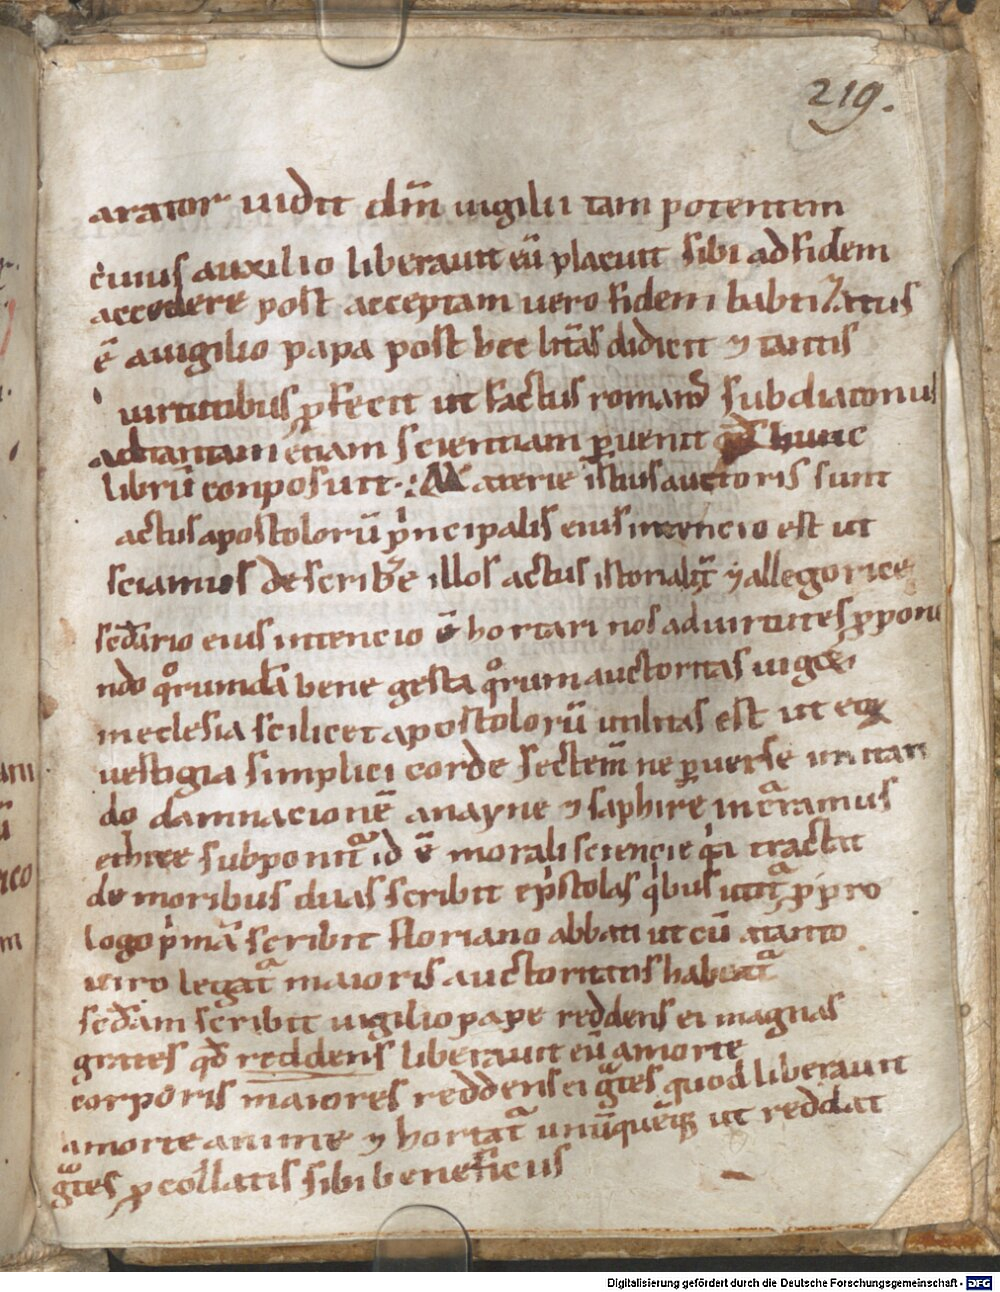 219.
arator uidit dm̄ uigilii tam potentem
cuius auxilio liberauit eū placuit sibi ad fidem
accedere post acceptam uero fidem babtizatus
ē a uigilio papa post hec litt̄as didicit ⁊ tantis
uirtutibus ꝓfecit ut factus roman subdiaconus
ad tantam etiam scientiam ꝑuenit hunc
librū conposuit. Materie istius auctoris sunt
actus apostolorū pͥncipalis eius intencio est ut
sciamus describere illos actus istorialit̄ ⁊ allegorice
sc̄dario eius intencio ē hortari nos ad uirtutes ꝓpone
ndo qͦrumdā bene gesta qͦrum auctoritas uiget
in eclesia scilicet apostolorū utilitas est ut eoꝝ
uestigia simplici corde sectem̄ ne ꝑuerse imitan
do damnacionē anayne ⁊ saphire incͬramus
ethice subponit̄ id ē morali sciencie qͥ tractat
de moribus duas scribit epistolas qͥbus utit̄ ꝓ pro
logo pͥmā scribit floriano abbati ut cū a tanto
uiro legat̄ maioris auctoritatis habeat̄
sc̄dam scribit uigilio pape reddens ei magnas
grates qd̄ reddens liberauit eū a morte
corporis maiores reddens ei gͣtes quod liberauit
a morte anime ⁊ hortat̄ unūquēqꝫ ut reddat
gͣtes ꝓ collatis sibi beneficiis
Digitalisierung gefördert durch die Deutsche Forschungsgemeinschaft - DFG